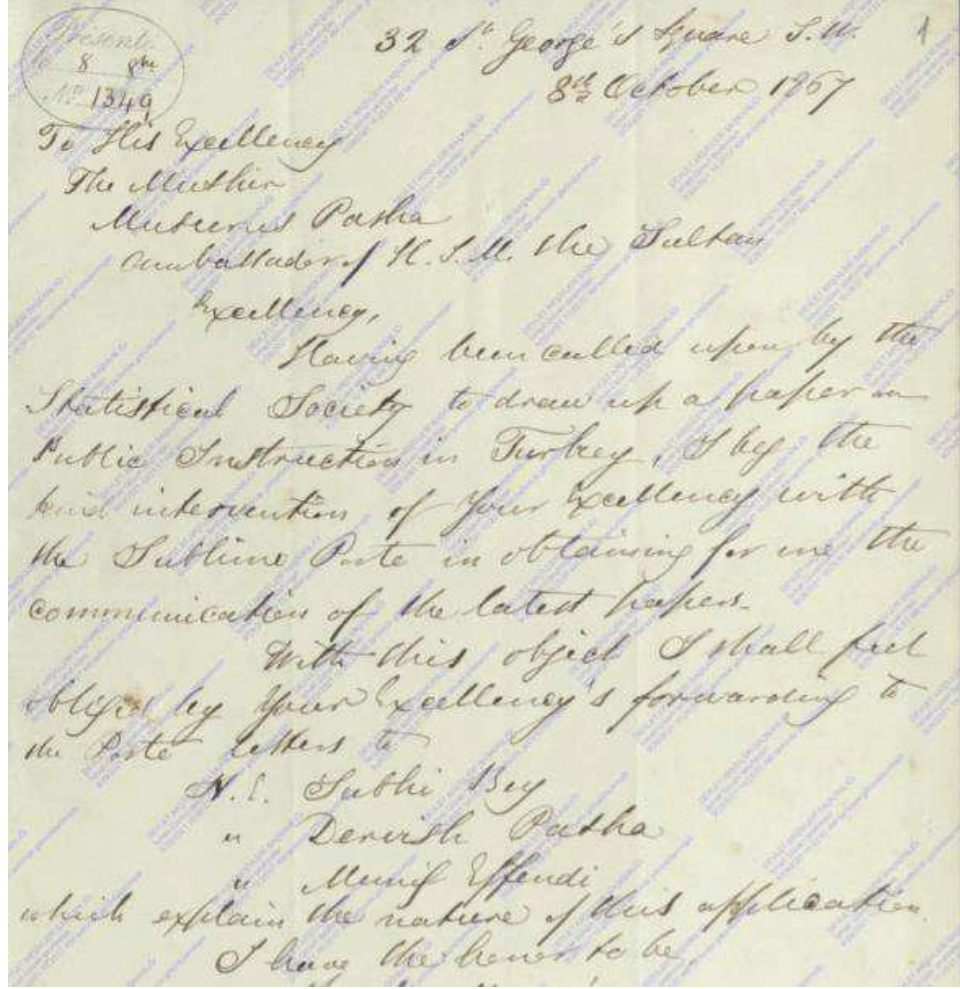 Presenté
8 8bre
No 1349
1
32 St. George's Square S.W.
8th October 1867
To His Excellency
The Mushir
Musurus Pasha
Ambassador of H. I. M. the Sultan
Excellency,
Having been called upon by the
Statistical Society to draw up a paper on
Public Instruction in Turkey, I beg the
kind intervention of Your Excellency with
the Sublime Porte in obtaining for me the
communication of the latest papers.
With this object I shall feel
obliged by Your Excellency's forwarding to
the Porte letters to
H. E. Subhi Bey
" Dervish Pasha
" Munif Effendi
which explain the nature of this application.
I have the honor to be